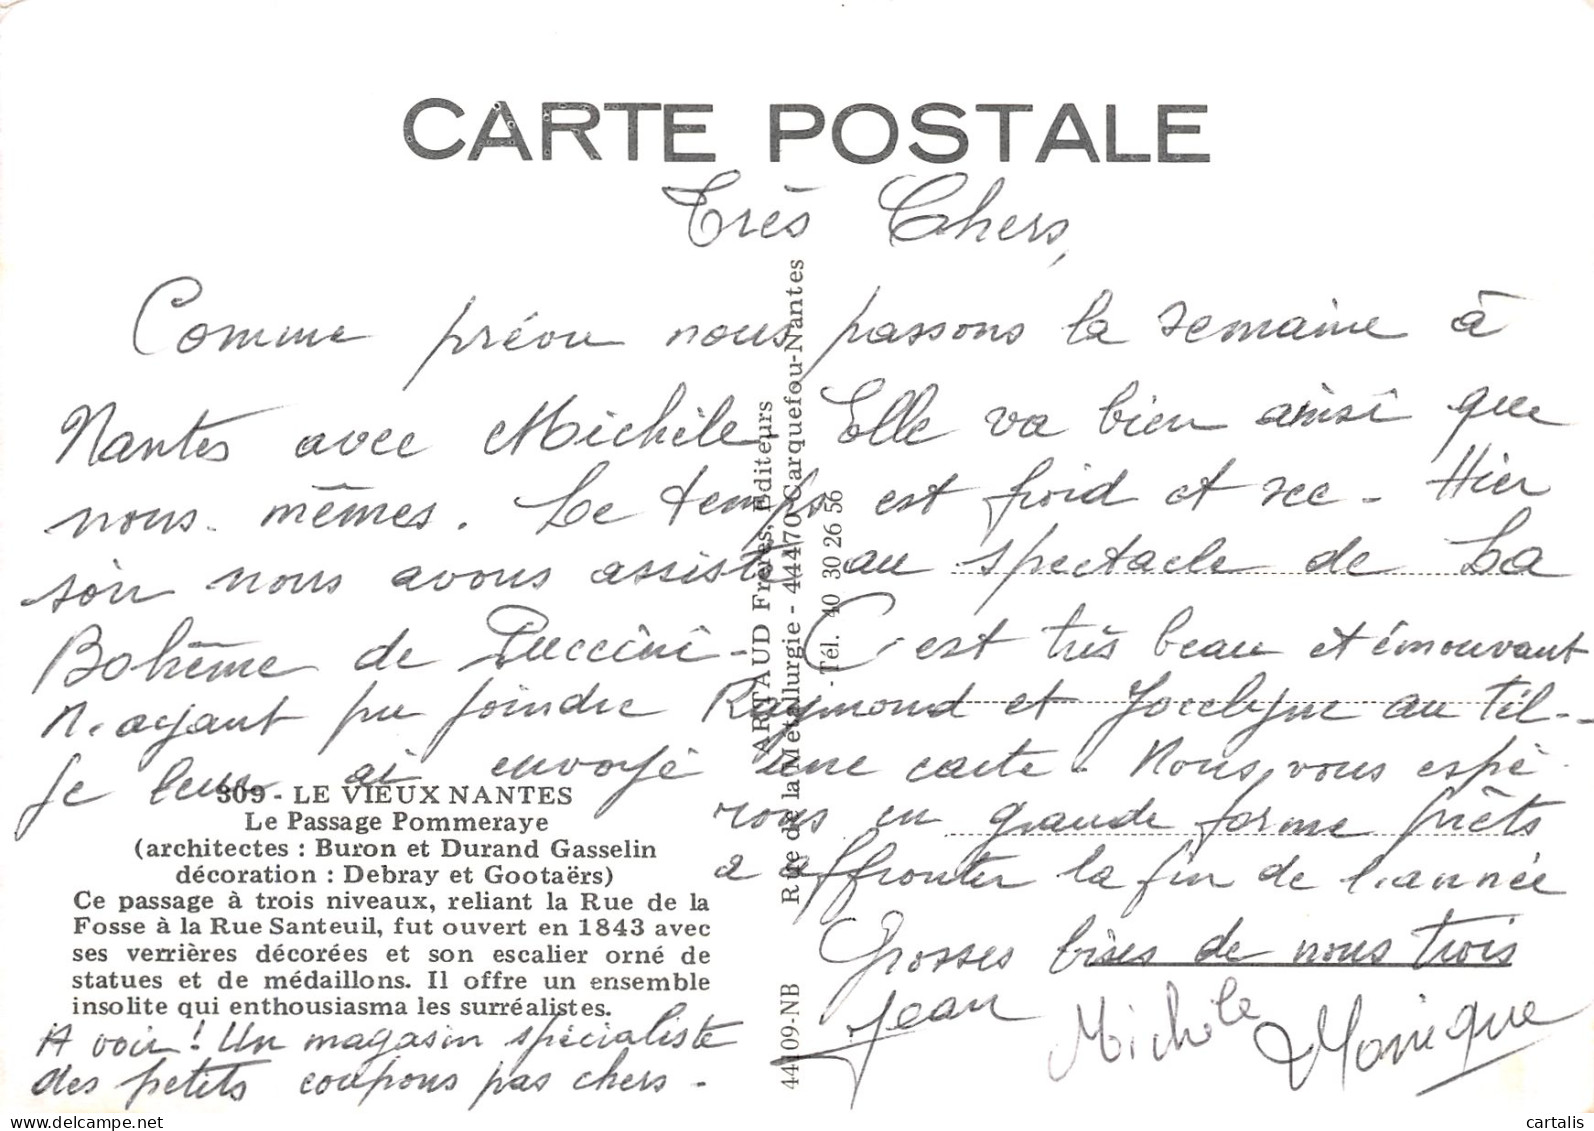 CARTE POSTALE
Très Chers,
Comme prévu nous passons la semaine à
Nantes avec Michèle. Elle va bien ainsi que
nous-mêmes. Le temps est froid et sec - Hier
soir nous avons assisté au spectacle de La
Bohême de Puccini - C'est très beau et émouvant
N'ayant pu joindre Raymond et Jocelyne au tél-
Je leur ai envoyé une carte. Nous vous espé-
rons en grande forme prêts
à affronter la fin de l'année
Grosses bises de nous trois
Jean
Michèle
Monique
309 - LE VIEUX NANTES
Le Passage Pommeraye
(architectes : Buron et Durand Gasselin
décoration : Debray et Gootaërs)
Ce passage à trois niveaux, reliant la Rue de la
Fosse à la Rue Santeuil, fut ouvert en 1843 avec
ses verrières décorées et son escalier orné de
statues et de médaillons. Il offre un ensemble
insolite qui enthousiasma les surréalistes.
A voir ! Un magasin spécialiste
des petits coupons pas chers -
ARTAUD Frères, Editeurs
Rue de la Métallurgie - 44470 Carquefou-Nantes
- Tél. 40 30 26 56
44109-NB
cartalis
www.delcampe.net